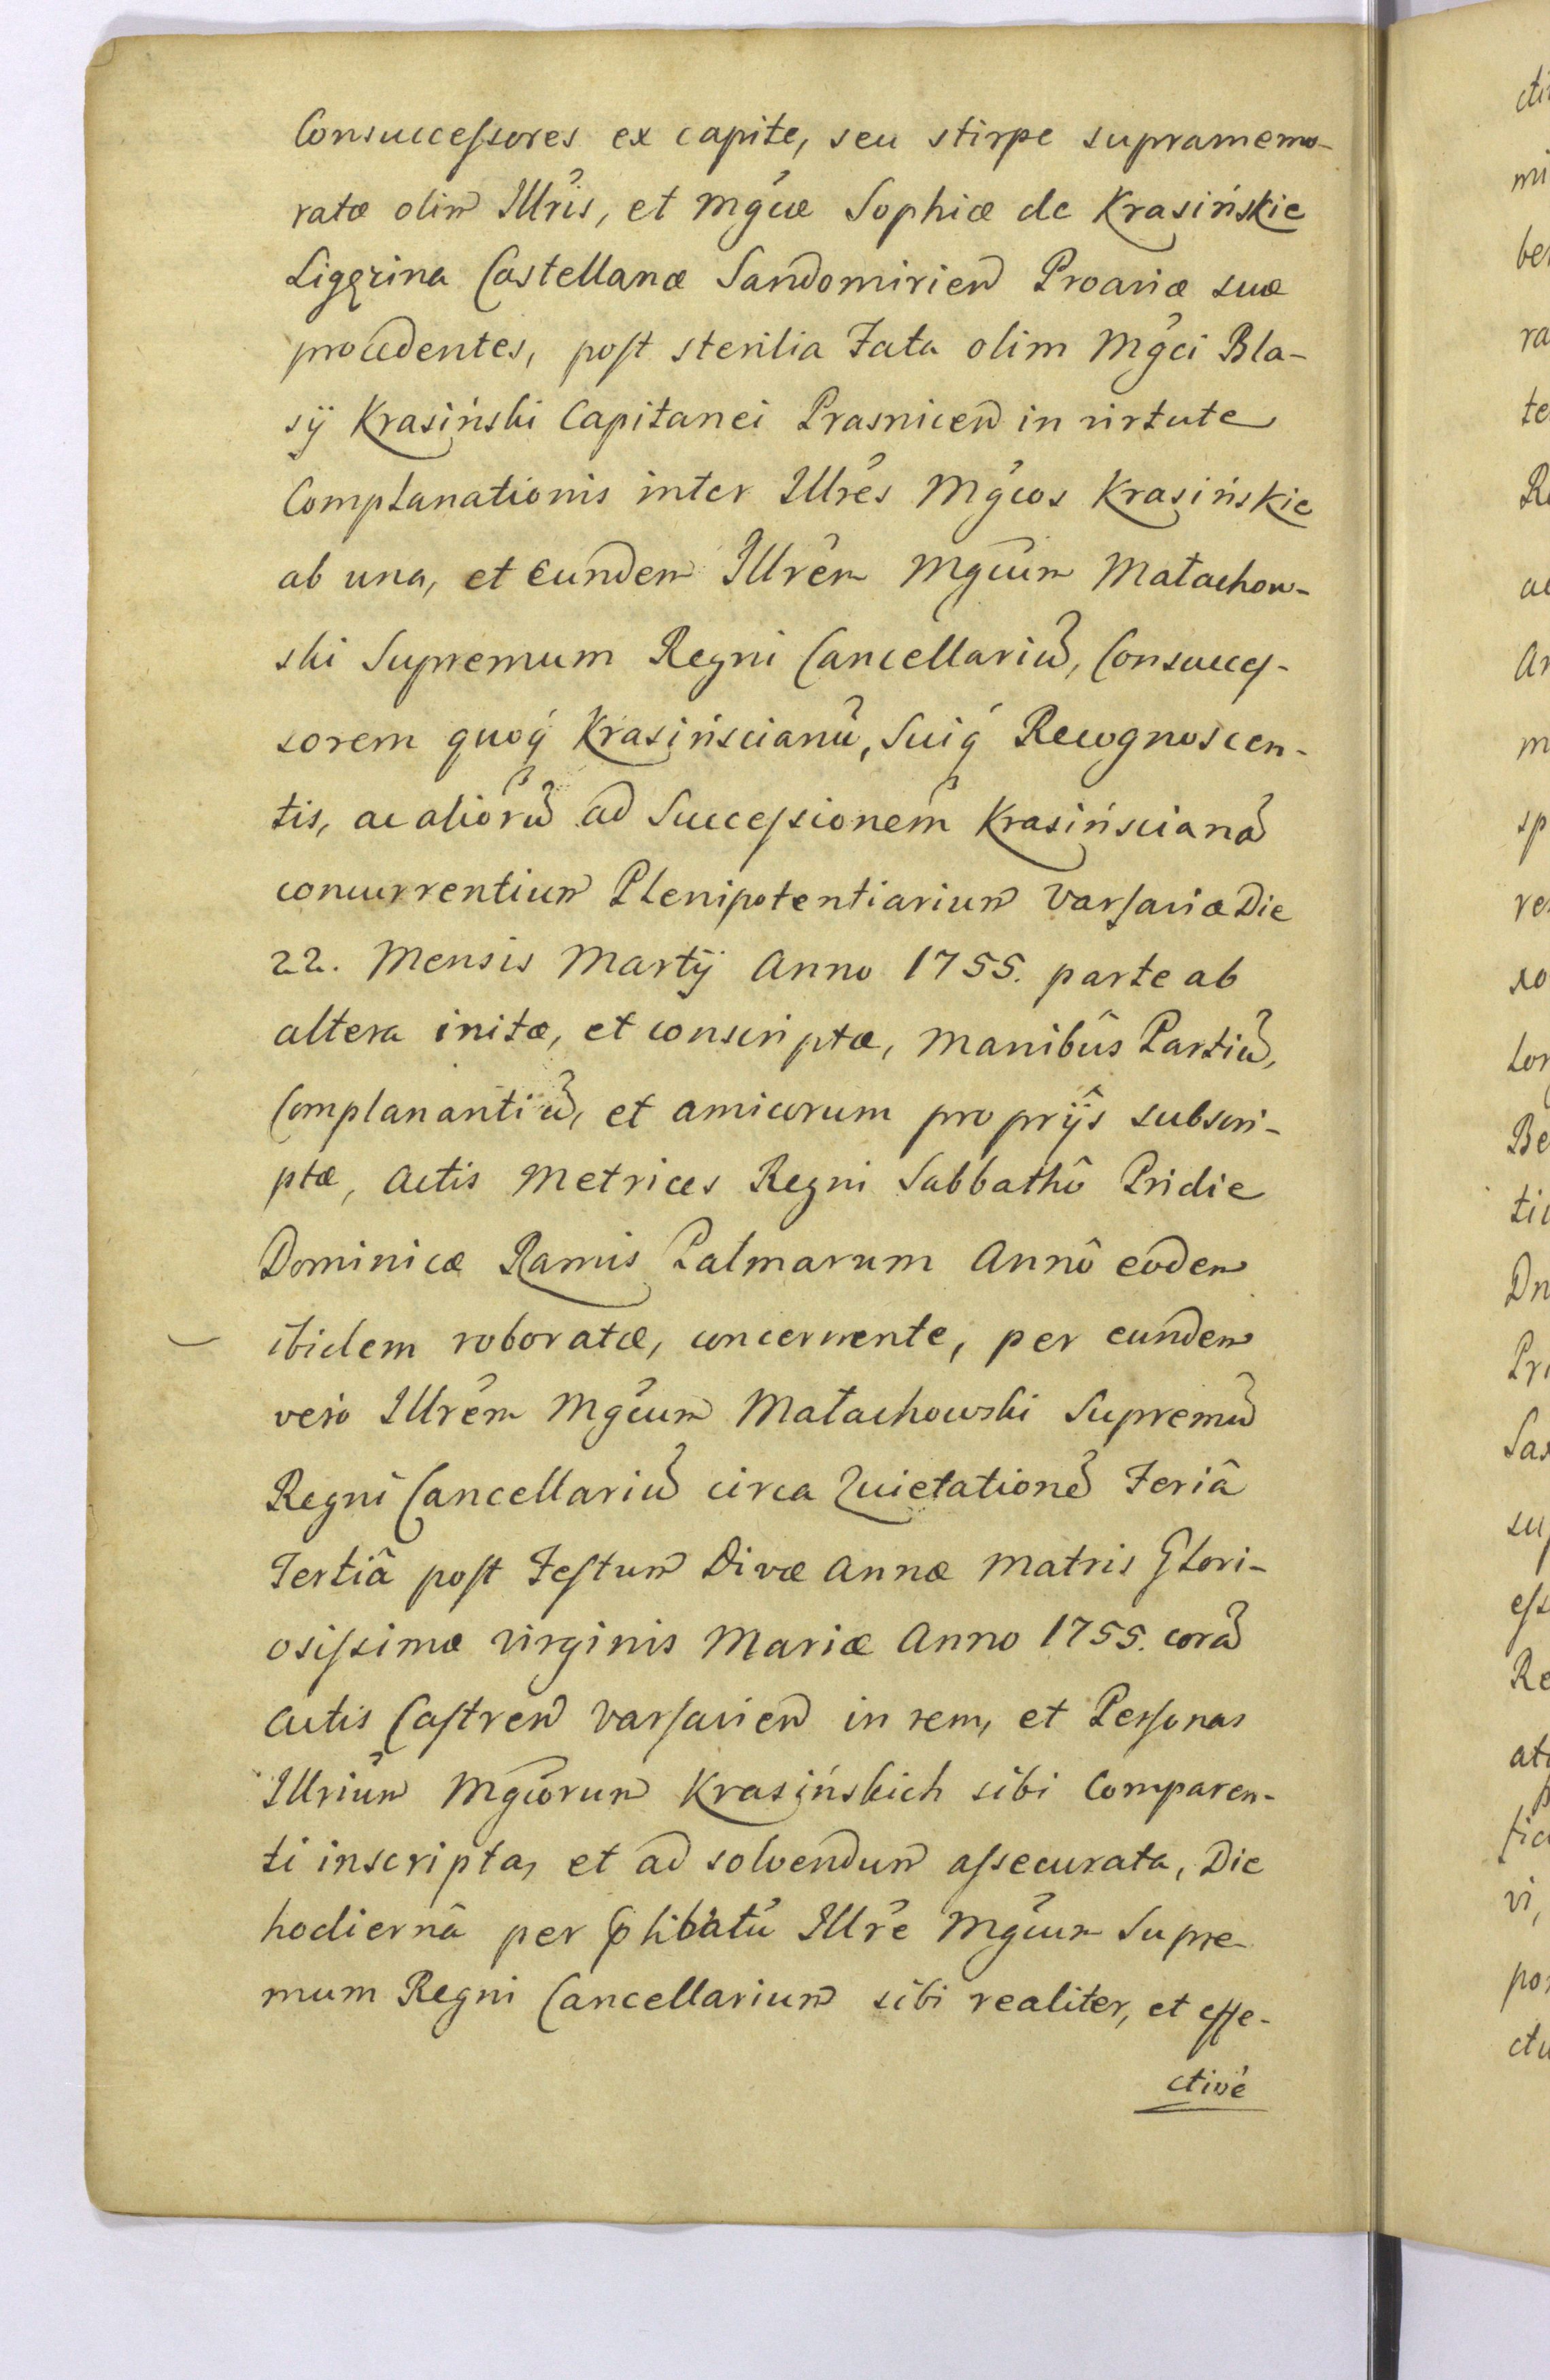 Consuccessores ex capite, seu stirpe supramemo-
ratæ olim Illris, et Mgcæ Sophiæ de Krasińskie
Ligęzina Castellanæ Sandomirien Proaviæ suæ
procedentes, post sterilia Fata olim Mgci Bla-
sÿ Krasiński Capitanei Prasnicen in virtute
Complanationis inter Illres Mgcos Krasińskie
ab una, et Eundem Illrem Mgcum Małachow-
ski Supremum Regni Cancellariũ, Consucces-
sorem quoq́ Krasińscianũ, Suiq́ Recognoscen-
tis, ac aliorũ ad Successionem Krasińscianã
concurrentium Plenipotentiarium Varsaviæ Die
22. Mensis Martÿ Anno 1755. parte ab
altera initæ, et conscriptæ, Manibûs Partiũ,
Complanantiũ, et amicorum proprÿs subscri-
ptæ, Actis Metrices Regni Sabbathô Pridie
Dominicæ Ramis Palmarum Annô eodem
ibidem roboratæ, concernente, per eundem
vero Illrem Mgcum Małachowski Supremũ
Regni Cancellariũ circa Quietationẽ Feriâ
Tertiâ post Festum Divæ Annæ Matris Glori-
osissimæ Virginis Mariæ Anno 1755. corã
Actis Castren Varsavien in rem, et Personas
Illrium Mgcorum Krasińskich sibi Comparen-
ti inscripta, et ad solvendum assecurata, Die
hodiernâ per libatũ Illre Mgcum Supre-
mum Regni Cancellarium sibi realiter, et effe-
ctivè